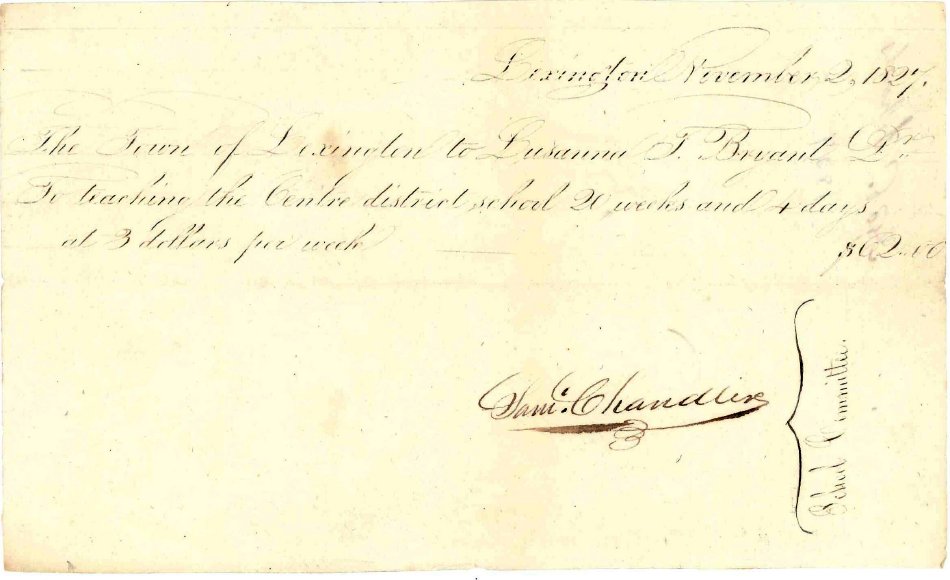 Lexington November 2, 1827.
The Town of Lexington to Susanna T. Bryant Dr.
To teaching the Centre district school 20 weeks and 4 days
at 3 dollars per week $62.00
Saml. Chandler
School Committee.